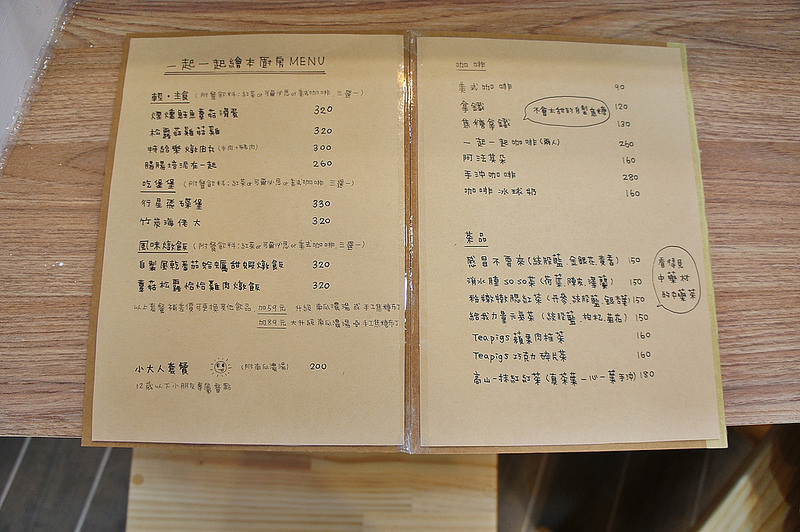 一起一起繪本廚房 MENU
輕・主食 (附餐飲料:紅茶or可爾必思or美式咖啡 三選一)
煙燻鮭魚蕈菇滑蛋 320
松露菇雞菇雞 320
特給樂燉肉丸 (牛肉+豬肉) 300
腸腸培泥在一起 260
吃堡堡 (附餐飲料:紅茶or可爾必思or美式咖啡 三選一)
行星漢堡 330
竹炭海佬大 320
風味燉飯 (附餐飲料:紅茶or可爾必思or美式咖啡 三選一)
自製風乾番茄蛤蠣甜蝦燉飯 320
蕈菇松露恰恰雞肉燉飯 320
以上套餐 補差價可更換其他飲品,加59元 升級 南瓜濃湯 或 手工焦糖布丁
加89元 大升級 南瓜濃湯 + 手工焦糖布丁
小大人套餐 (附南瓜濃湯) 200
12歲以下小朋友專屬餐點
咖啡
美式咖啡 90
拿鐵 120
焦糖拿鐵 130
不會太甜的自製焦糖
一起一起咖啡(兩人) 260
阿法其朵 160
手沖咖啡 280
咖啡冰球奶 160
茶品
感冒不要來 (絞股藍 金銀花 麥香) 150
消水腫 so so 茶 (荷葉 陳皮 澤蘭) 150
粉嫩嫩腮紅茶 (丹參 絞股藍 銀髮) 150
給我力量元氣茶 (絞股藍 枸杞 菊花) 150
看得見
中藥材
的中藥茶
Teapigs 蘋果肉桂茶 160
Teapigs 巧克力碎片茶 160
高山一抹紅紅茶 (真茶葉一心一葉手沖) 180